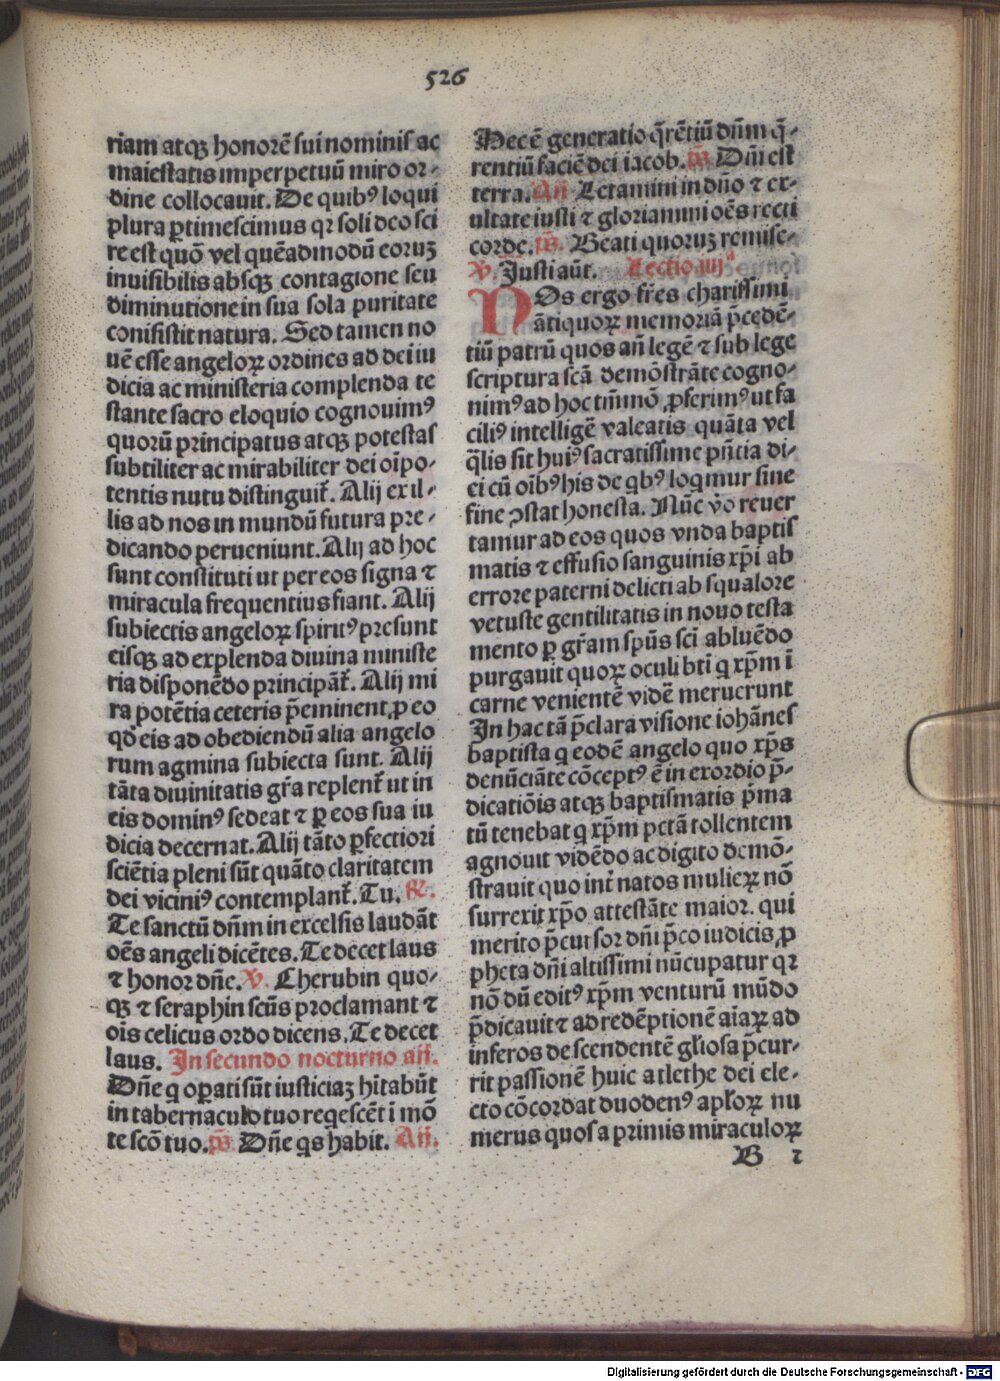 526
riam atqꝫ honorē sui nominis ac
maiestatis imperpetuū miro or-
dine collocauit. De quibꝰ loqui
plura ꝑtimescimus qꝛ soli deo sci
re est quō vel quēadmodū eoruꝫ
inuisibilis absqꝫ contagione seu
diminutione in sua sola puritate
conisistit natura. Sed tamen no
uē esse angeloꝝ ordines ad dei iu
dicia ac ministeria complenda te
stante sacro eloquio cognouimꝰ
quorū principatus atqꝫ potestas
subtiliter ac mirabiliter dei oīpo-
tentis nutu distinguit̃. Alij ex il-
lis ad nos in mundū futura pre-
dicando perueniunt. Alij ad hoc
sunt constituti ut per eos signa ⁊
miracula frequentius fiant. Alij
subiectis angeloꝝ spiritꝰ presunt
eisqꝫ ad explenda diuina ministe
ria disponēdo principāt̃. Alij mi
ra potētia ceteris p̄eminent, ꝓ eo
qd̓ eis ad obediendū alia angelo
rum agmina subiecta sunt. Alij
tāta diuinitatis gr̄a replent̃ ut in
eis dominꝰ sedeat ⁊ ꝑ eos sua iu
dicia decernat. Alij tāto ꝑfectiori
sciētia pleni sūt quāto claritatem
dei viciniꝰ contemplant̃. Tu. ℟.
Te sanctū dn̄m in excelsis laudāt
oēs angeli dicētes. Te decet laus
⁊ honor dn̄e. ℣. Cherubin quo-
qꝫ ⁊ seraphin scūs proclamant ⁊
oīs celicus ordo dicens. Te decet
laus. In secundo nocturno añ.
Dn̄e q̇ oꝑati sūt iusticiaꝫ hītabūt
in tabernaculo tuo reqescēt ī mō
te scō tuo. ps̄. Dn̄e qs habit. Añ.
Hec ē generatio q̄rētiū dn̄m q̄-
rentiū faciē dei iacob. ps̄. Dn̄i est
terra. Añ Letamini in dn̄o ⁊ ex-
ultate iusti ⁊ gloriamini oēs recti
corde. ps̄. Beati quoruꝫ remisse-
℣. Justi aūt. Lectio iiijᵃ.
NOs ergo fr̄es charissimi
ātiquoꝝ memoriā p̄cedē-
tiū patrū quos an̄ legē ⁊ sub lege
scriptura scā demōstrāte cogno-
nimꝰ ad hoc tm̄mō, ꝓserimꝰ ut fa
ciliꝰ intelligē valeatis quāta vel
q̄lis sit huiꝰ sacratissime pn̄tia di-
ei cū oībꝰ his de qbꝰ loqmur sine
fine ꝯstat honesta. Nūc v̄o reuer
tamur ad eos quos vnda baptis
matis ⁊ effusio sanguinis xp̄i ab
errore paterni delicti ab squalore
vetuste gentilitatis in nouo testa
mento ꝑ gr̄am sp̄us sc̄i abluēdo
purgauit quoꝝ oculi bt̄i q xp̄m ī
carne venientē vidē meruerunt
In hac tā p̄clara visione iohānes
baptista q eodē angelo quo xp̄s
denūciāte cōceptꝰ ē in exordio p̄-
dicatiōis atqꝫ baptismatis p̄ma
tū tenebat q xp̄m pctā tollentem
agnouit vidēdo ac digito demō-
strauit quo int̃ natos mulieꝝ nō
surrexit xp̄o attestāte maior. qui
merito p̄cursor dn̄i p̄co iudicis, ꝓ
pheta dn̄i altissimi nūcupatur qꝛ
nō dū editꝰ xp̄m venturū mūdo
p̄dicauit ⁊ ad redēptionē aīaꝝ ad
inferos descendentē gl̄iosa p̄cur-
rit passionē huic atlethe dei ele-
cto cōcordat duodenꝰ apl̄oꝝ nu
merus quos a primis miraculoꝝ
B ⁊
Digitalisierung gefördert durch die Deutsche Forschungsgemeinschaft - DFG